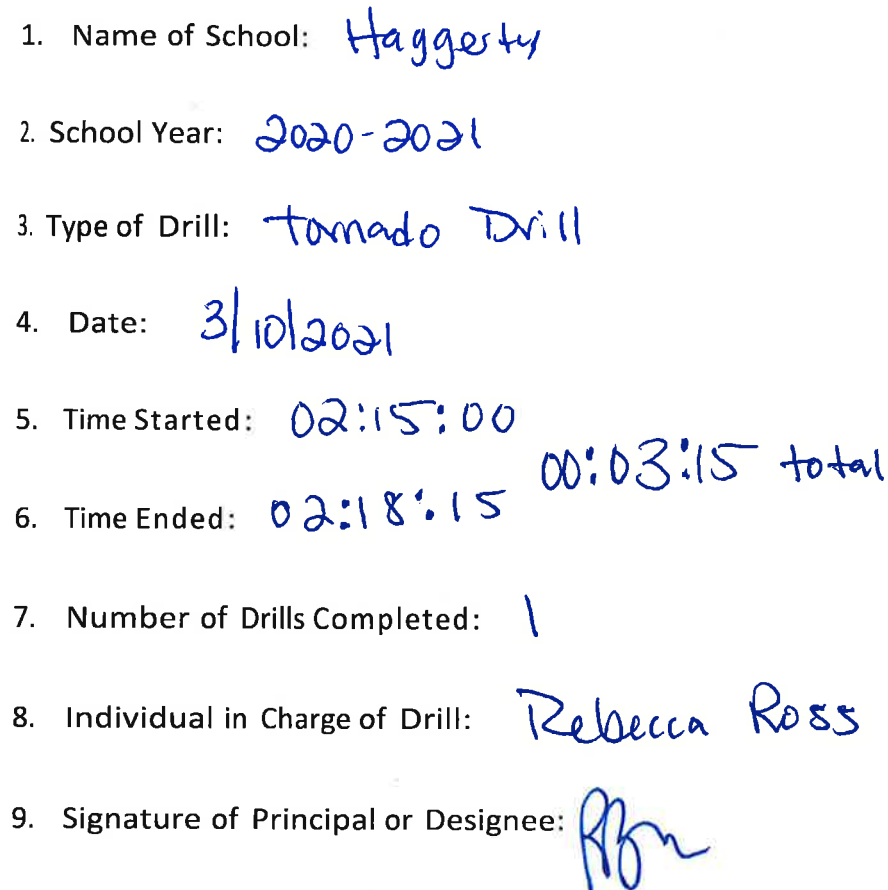 1. Name of School: Haggerty
2. School Year: 2020-2021
3. Type of Drill: Tornado Drill
4. Date: 3/10/2021
5. Time Started: 02:15:00
00:03:15 total
6. Time Ended: 02:18:15
7. Number of Drills Completed: 1
8. Individual in Charge of Drill: Rebecca Ross
9. Signature of Principal or Designee: